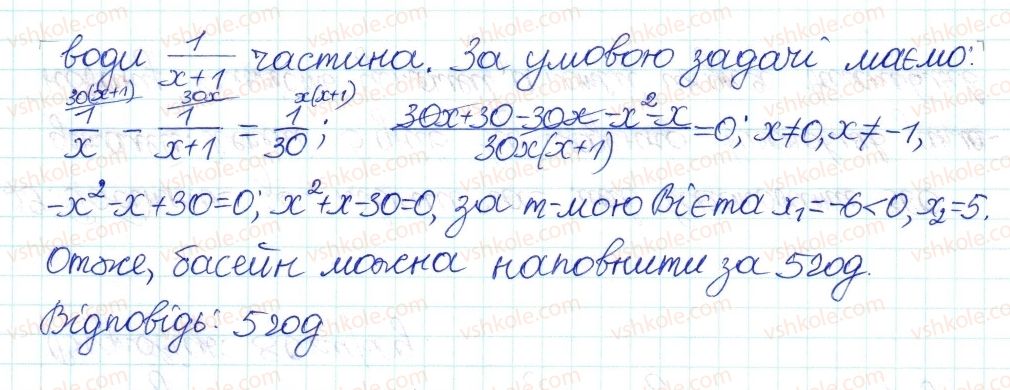 води 1/(x+1) частина. За умовою задачі маємо:
30(x+1) 30x x(x+1)
1/x - 1/(x+1) = 1/30; (30x+30-30x-x²-x)/(30x(x+1)) =0; x≠0, x≠-1,
-x²-x+30=0; x²+x-30=0, за т-мою Вієта x₁=-6<0, x₂=5.
Отже, басейн можна наповнити за 5 год.
Відповідь: 5 год